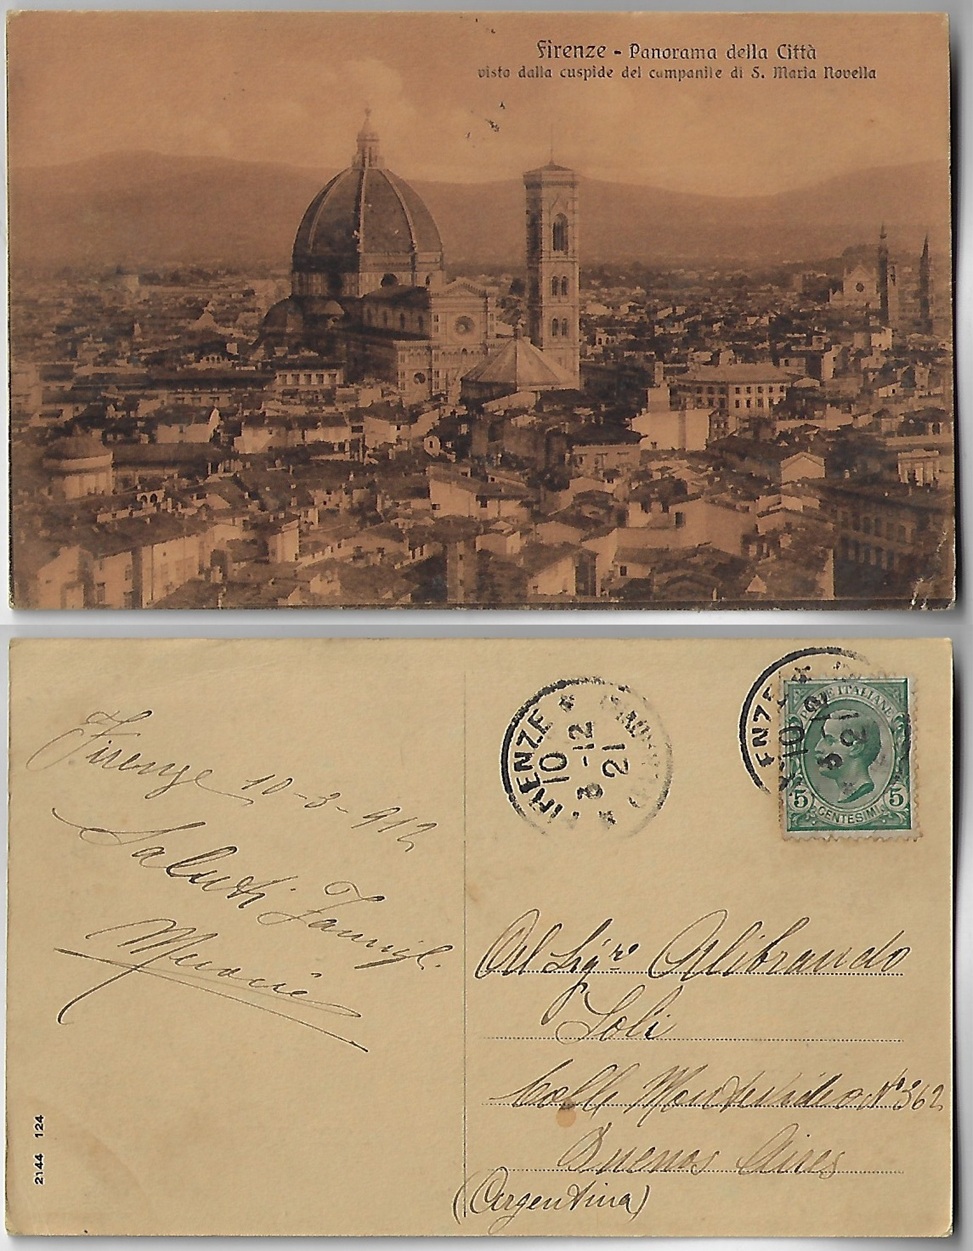 Firenze - Panorama della Città
visto dalla cuspide del campanile di S. Maria Novella
Firenze 10-3-912
Saluti Famigl.
2144 124
FIRENZE
10
3-12
21
ENZE
10
3
21
POSTE ITALIANE
5 5
CENTESIMI
Al Sigre Alibrando
Joli
Calle Montevideo No 362
Buenos Aires
(Argentina)